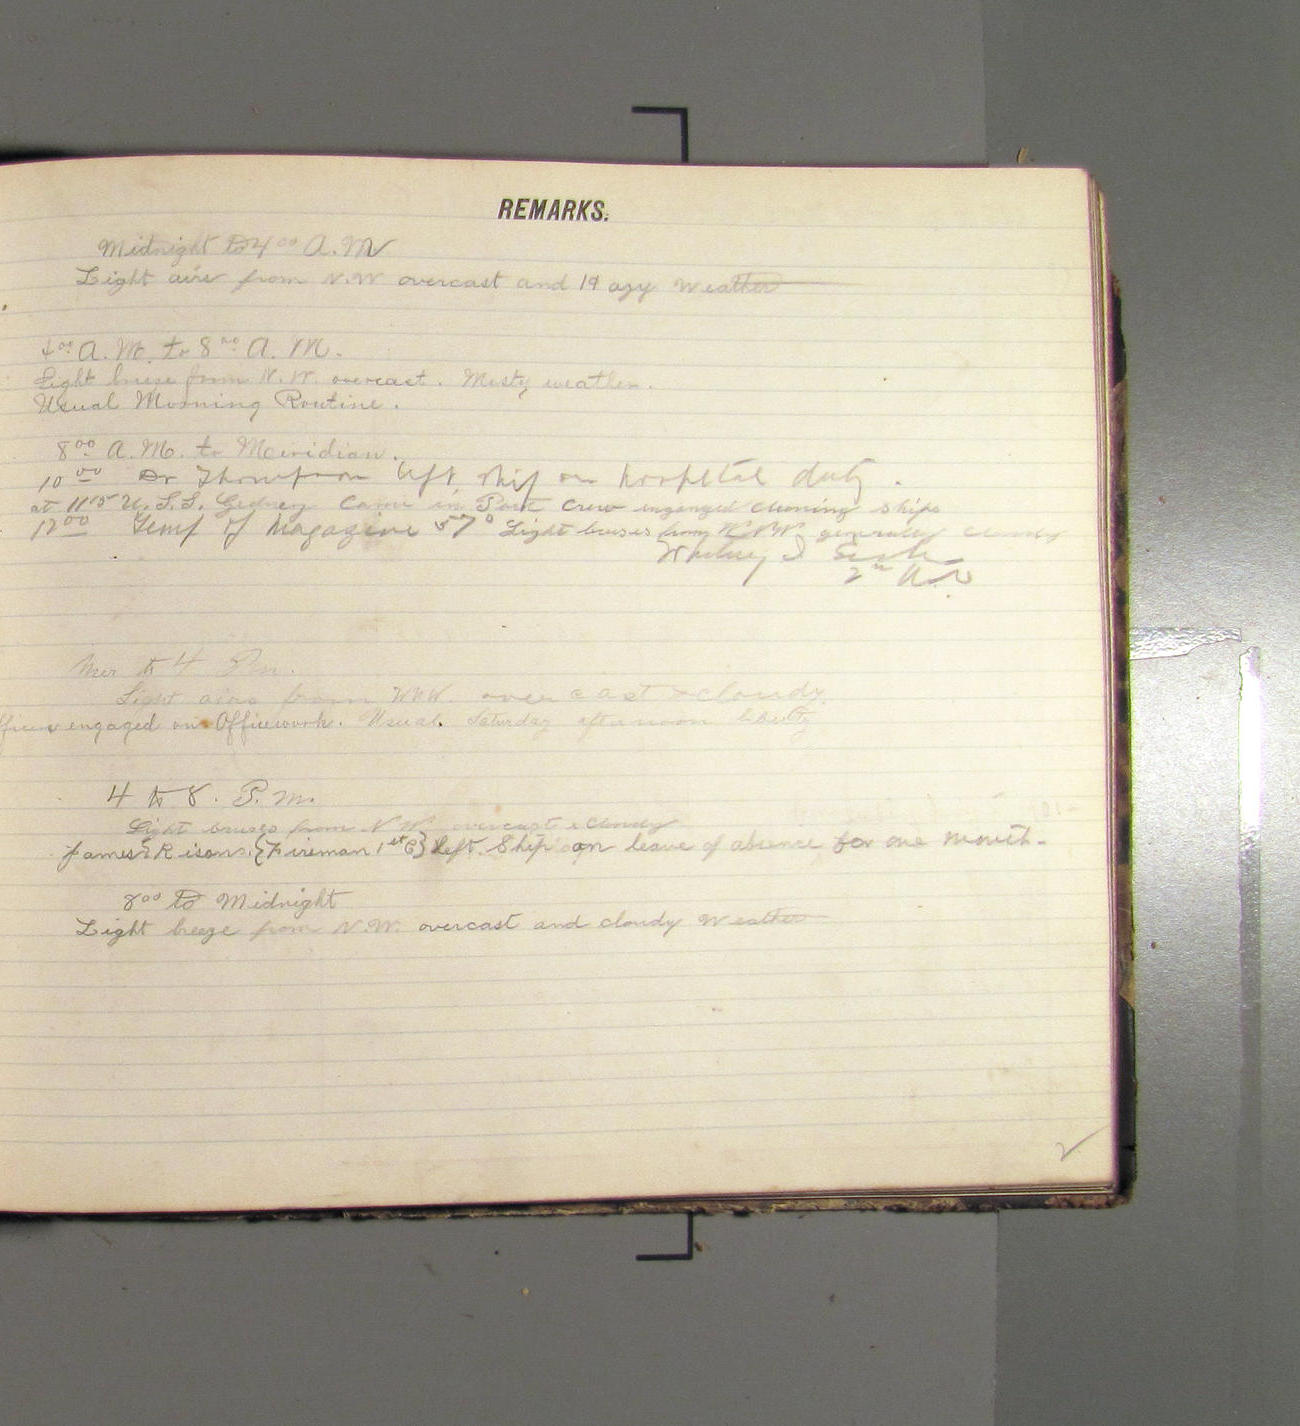 REMARKS.
Midnight to 4 00 A.M
Light airs from N.W overcast and Hazy Weather
4 00 A.M. to 8 00 A.M.
Light breese from N.W. overcast. Misty weather.
Usual Morning Routine.
8 00 A.M. to Meridian.
10 00 Dr Thompson left ship on hospital duty.
at 11 15 U.S.S. Gedney Came in Port Crew engaged cleaning ships
12 00 Temp of Magazine 57° Light breses from W.N.W. generally cloudy
2nd
Mer to 4 Pm.
Light airs from WNW. overcast & cloudy.
engaged on Officework. Usual. Saturday afternoon liberty
4 to 8. P.M.
Light breeses from N.W. overcast & cloudy
James Rison, {Fireman 1st C} left Ship on leave of absence for one month.
8 00 to Midnight
Light breeze from N.W. overcast and cloudy Weather